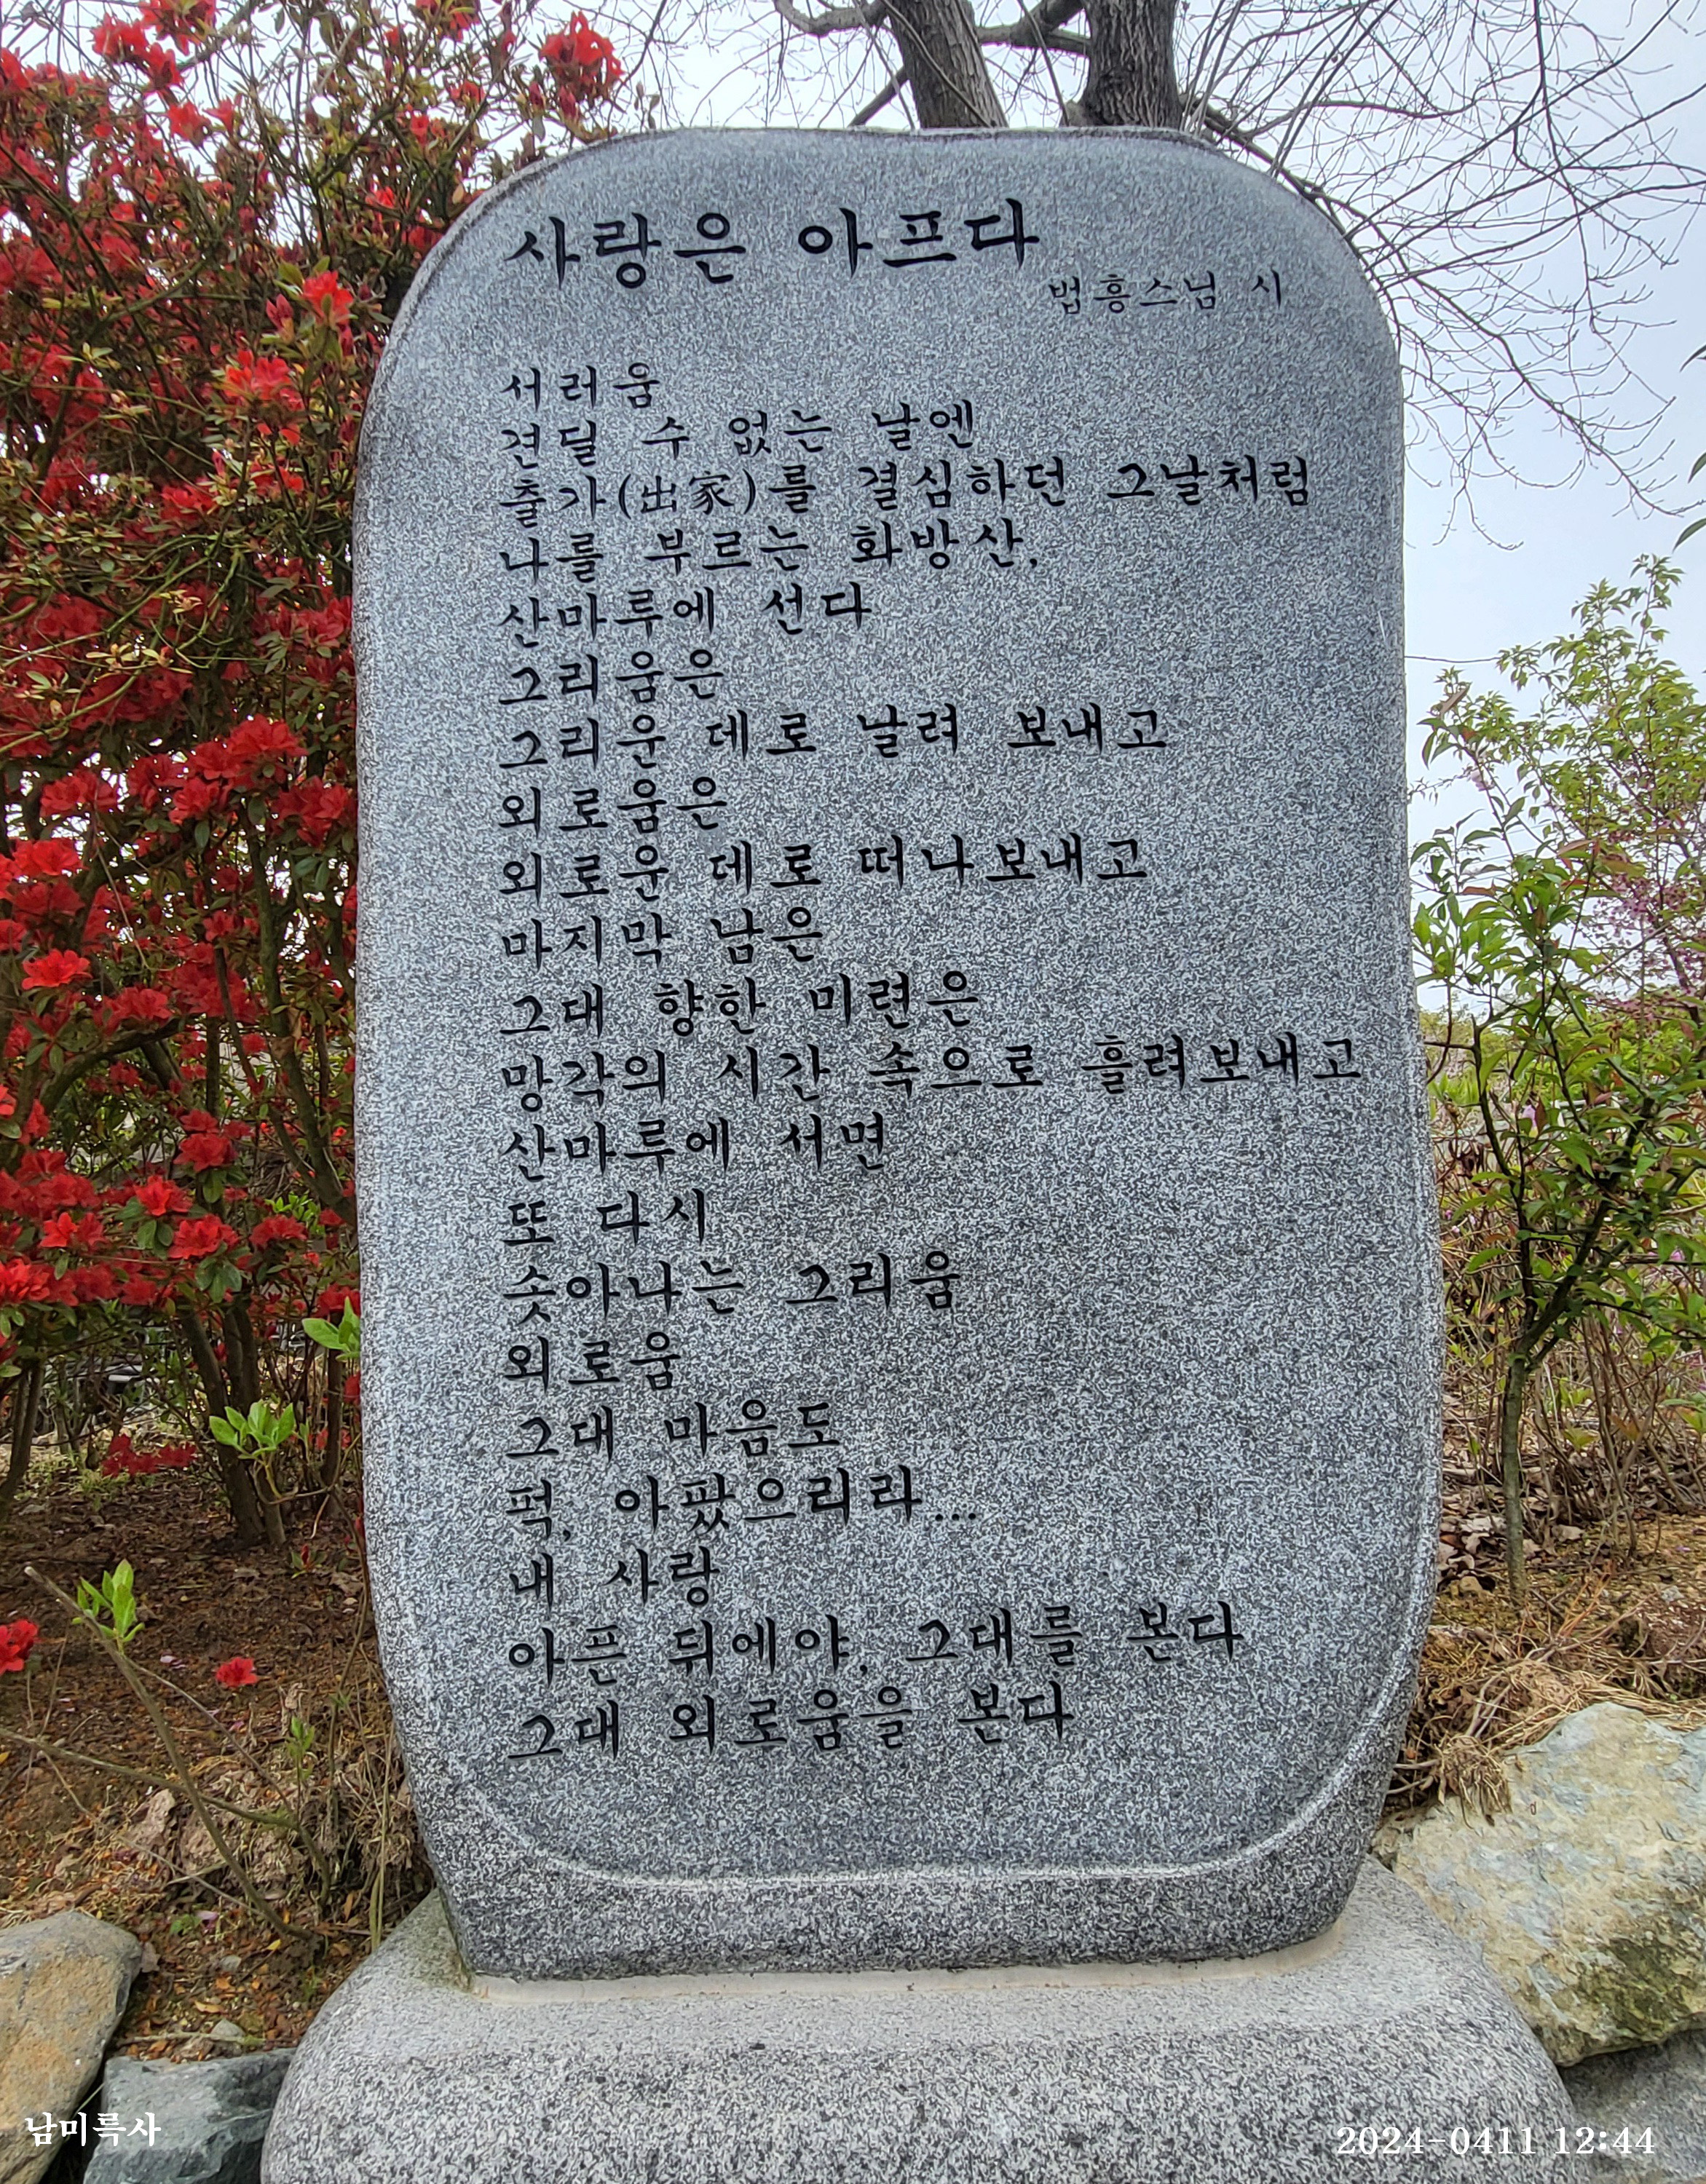 사랑은 아프다
법흥스님 시
서러움
견딜 수 없는 날엔
출가(出家)를 결심하던 그날처럼
나를 부르는 화방산,
산마루에 선다
그리움은
그리운 데로 날려 보내고
외로움은
외로운 데로 떠나보내고
마지막 남은
그대 향한 미련은
망각의 시간 속으로 흘려보내고
산마루에 서면
또 다시
솟아나는 그리움
외로움
그대 마음도
퍽, 아팠으리라...
내 사랑
아픈 뒤에야, 그대를 본다
그대 외로움을 본다
남미륵사
2024-0411 12:44